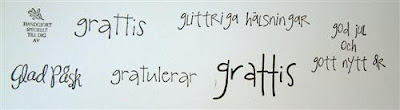 HANDGJORT
SPECIELLT
TILL DIG
AV
grattis
glittriga hälsningar
god jul
och
gott nytt år
Glad Påsk
gratulerar
grattis